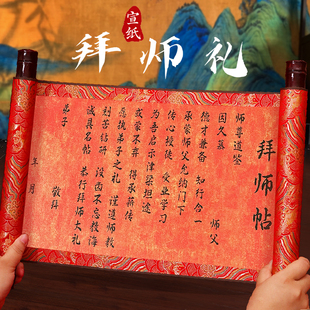 宣纸
拜师礼
拜师帖
师尊道鉴
因久慕
师父
德才兼备 知行合一
承蒙师父允纳门下
传心授徒 交业学习
为吾启示津梁坦途
或蒙不弃 得承薪传
愿执弟子之礼 谨遵师教
刻苦钻研 没齿不忘教诲
诚具名帖 恭行拜师大礼
敬拜
弟子
年 月